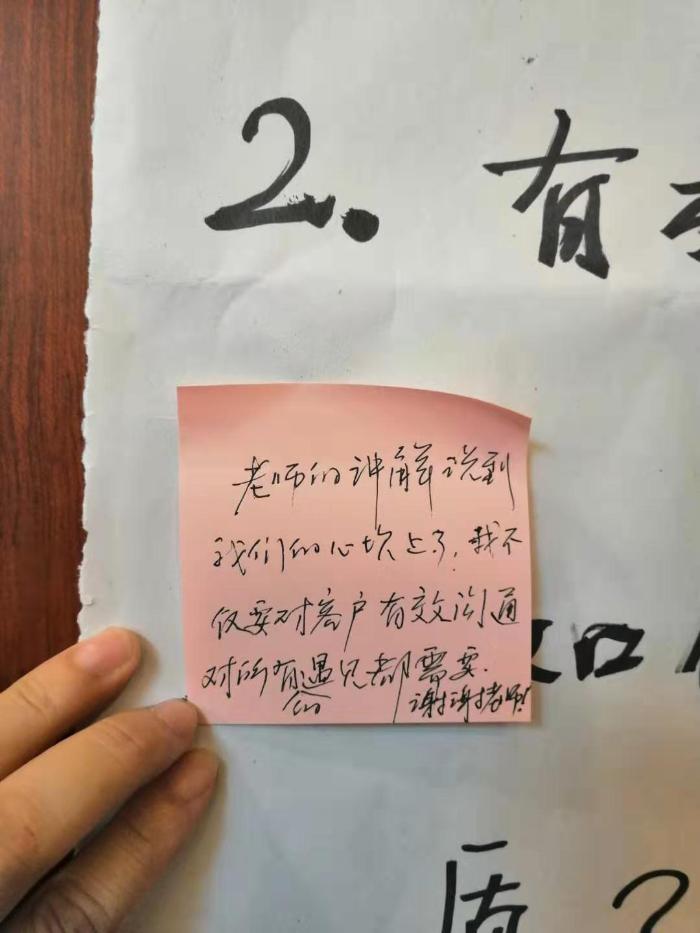 2. 有
老师的讲解说到
我们的心坎上了,我不
仅要对客户有效沟通
对所有遇见的都需要.
谢谢老师!
口
?